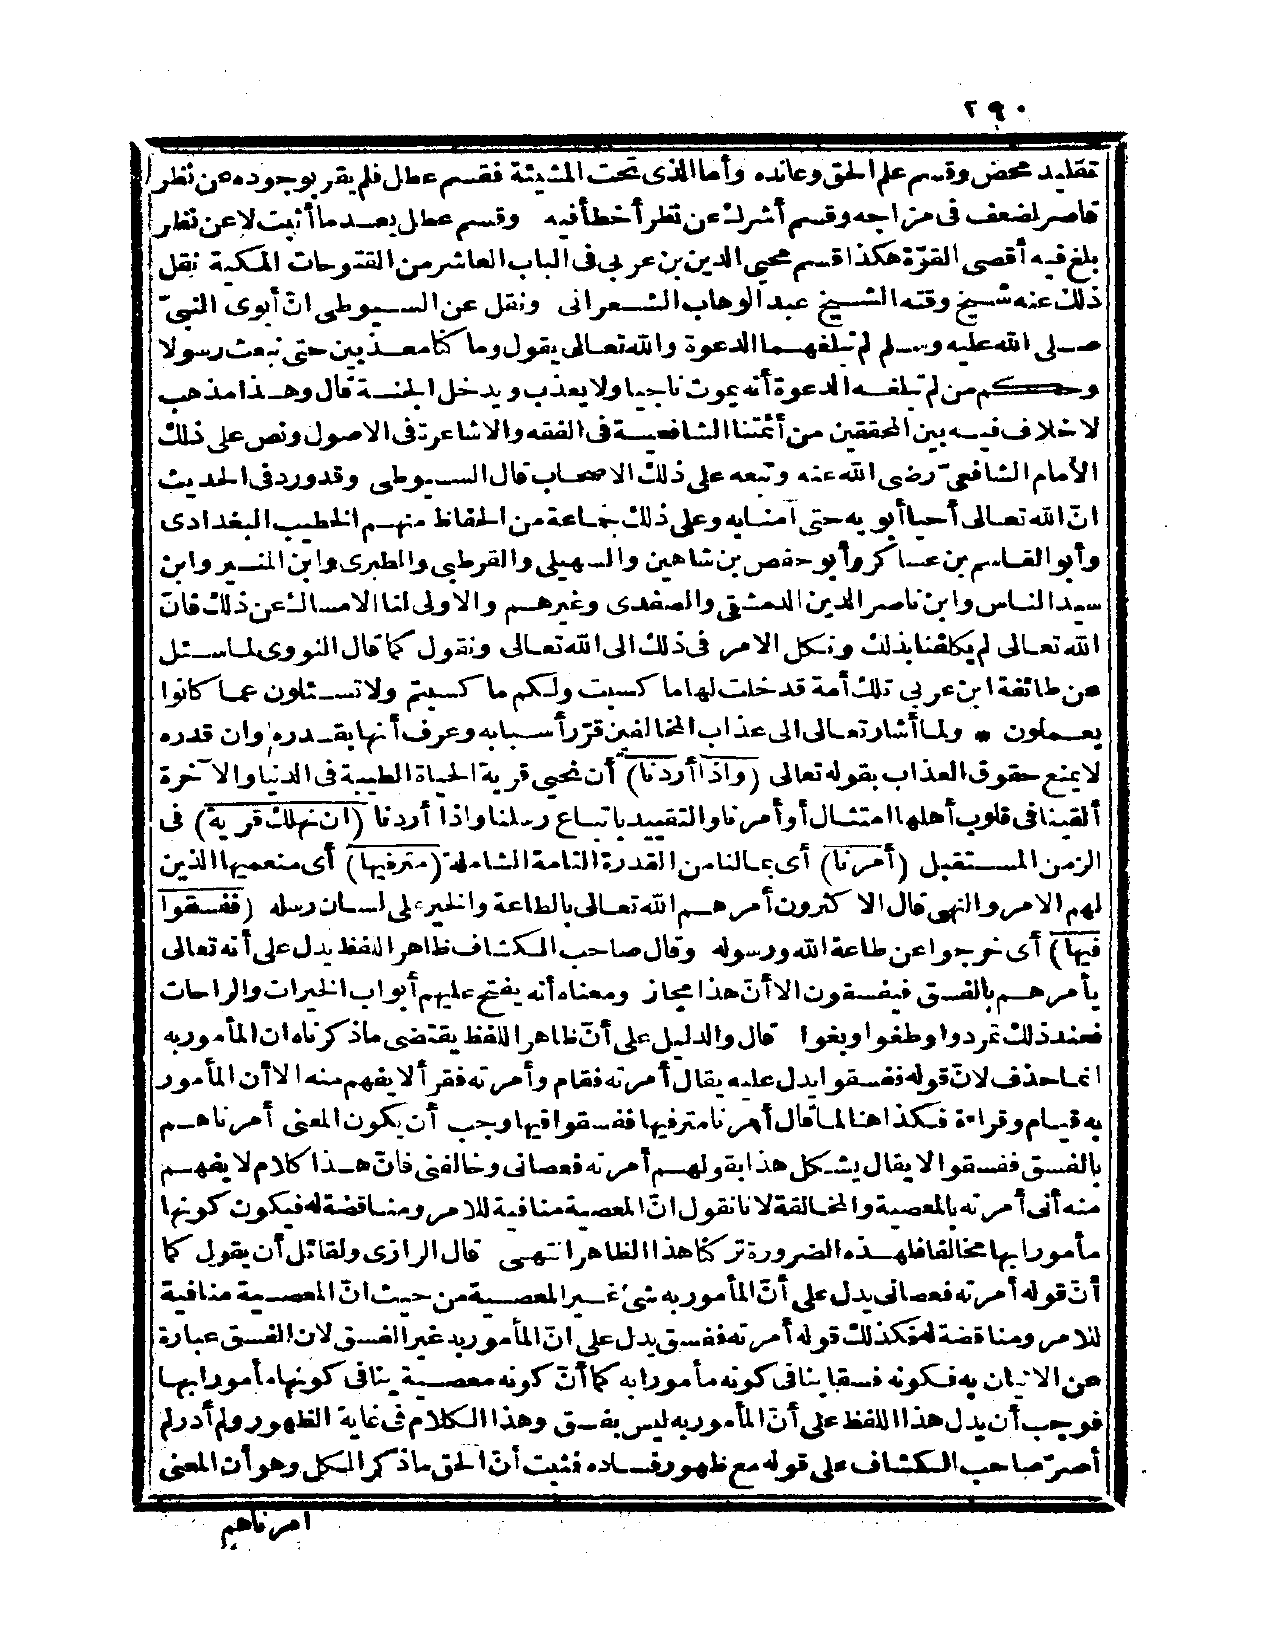 ٢٩٠
تقليد محض وقسم علم الحق وعانده وأما الذى تحت المشيئة فقسم عطل فلم يقر بوجوده عن نظر
قاصر لضعف فى مزاجه وقسم أشرك عن نظر أخطأ فيه وقسم عطل بعد ما أثبت لا عن نظر
بلغ فيه أقصى القوّة هكذا قسم محيى الدين بن عربى فى الباب العاشر من الفتوحات المكية نقل
ذلك عنه شيخ وقته الشيخ عبد الوهاب الشعرانى ونقل عن السيوطى انّ أبوى النبىّ
صلى الله عليه وسلم لم تبلغهما الدعوة والله تعالى يقول وما كنا معذبين حتى نبعث رسولا
وحكم من لم تبلغه الدعوة أنه يموت ناجيا ولا يعذب ويدخل الجنة قال وهذا مذهب
لا خلاف فيه بين المحققين من أئمتنا الشافعية فى الفقه والاشاعرة فى الاصول ونص على ذلك
الأمام الشافعىّ رضى الله عنه وتبعه على ذلك الاصحاب قال السيوطى وقد ورد فى الحديث
انّ الله تعالى أحيا أبويه حتى آمنا به وعلى ذلك جماعة من الحفاظ منهم الخطيب البغدادى
وأبو القاسم بن عساكر وأبو حفص بن شاهين والسهيلى والقرطبى والطبرى وابن المنير وابن
سيد الناس وابن ناصر الدين الدمشقى والصفدى وغيرهم والاولى لنا الامساك عن ذلك فانّ
الله تعالى لم يكلفنا بذلك ونكل الامر فى ذلك الى الله تعالى ونقول كما قال النووى لما سئل
عن طائفة ابن عربى تلك أمة قد خلت لها ما كسبت ولكم ما كسبتم ولا تسئلون عما كانوا
يعملون * ولما أشار تعالى الى عذاب المخالفين قرّر أسبابه وعرف أنها بقدره وان قدره
لا يمنع حقوق العذاب بقوله تعالى (واذا أردنا) أن نحيى قرية الحياة الطيبة فى الدنيا والآخرة
ألقينا فى قلوب أهلها امتثال أوامرنا والتقييد باتباع رسلنا واذا أردنا (ان نهلك قرية) فى
الزمن المستقبل (أمرنا) أى بمالنا من القدرة التامة الشاملة (مترفيها) أى منعميها الذين
لهم الامر والنهى قال الاكثرون أمرهم الله تعالى بالطاعة والخير على لسان رسله (ففسقوا
فيها) أى خرجوا عن طاعة الله ورسوله وقال صاحب الكشاف ظاهر اللفظ يدل على أنه تعالى
يأمرهم بالفسق فيفسقون الا أنّ هذا مجاز ومعناه أنه يفتح عليهم أبواب الخيرات والراحات
فعند ذلك تمردوا وطغوا وبغوا قال والدليل على أنّ ظاهر اللفظ يقتضى ماذكرناه ان المأمور به
انما حذف لانّ قوله ففسقوا يدل عليه يقال أمرته فقام وأمرته فقرأ لا يفهم منه الا أن المأمور
به قيام وقراءة فكذا هنا لما قال أمرنا مترفيها ففسقوا فيها وجب أن يكون المعنى أمرناهم
بالفسق ففسقوا لا يقال يشكل هذا بقولهم أمرته فعصانى وخالفنى فانّ هذا كلام لا يفهم
منه أنى أمرته بالمعصية والمخالفة لانا نقول انّ المعصية منافية للامر ومناقضة له فيكون كونها
مأمورا بها مخالفا فلهذه الضرورة تركنا هذا الظاهر انتهى قال الرازى ولقائل أن يقول كما
أنّ قوله أمرته فعصانى يدل على أنّ المأمور به شئ غير المعصية من حيث انّ المعصية منافية
للامر ومناقضة له فكذلك قوله أمرته ففسق يدل على انّ المأمور به غير الفسق لان الفسق عبارة
عن الاتيان به فكونه فسقا ينافى كونه مأمورا به كما أنّ كونه معصية ينافى كونها مأمورا بها
فوجب أن يدل هذا اللفظ على أنّ المأمور به ليس بفسق وهذا الكلام فى غاية الظهور ولم أدر لم
أصرّ صاحب الكشاف على قوله مع ظهور فساده فثبت أنّ الحق ماذكر الكل وهو أن المعنى
امرناهم